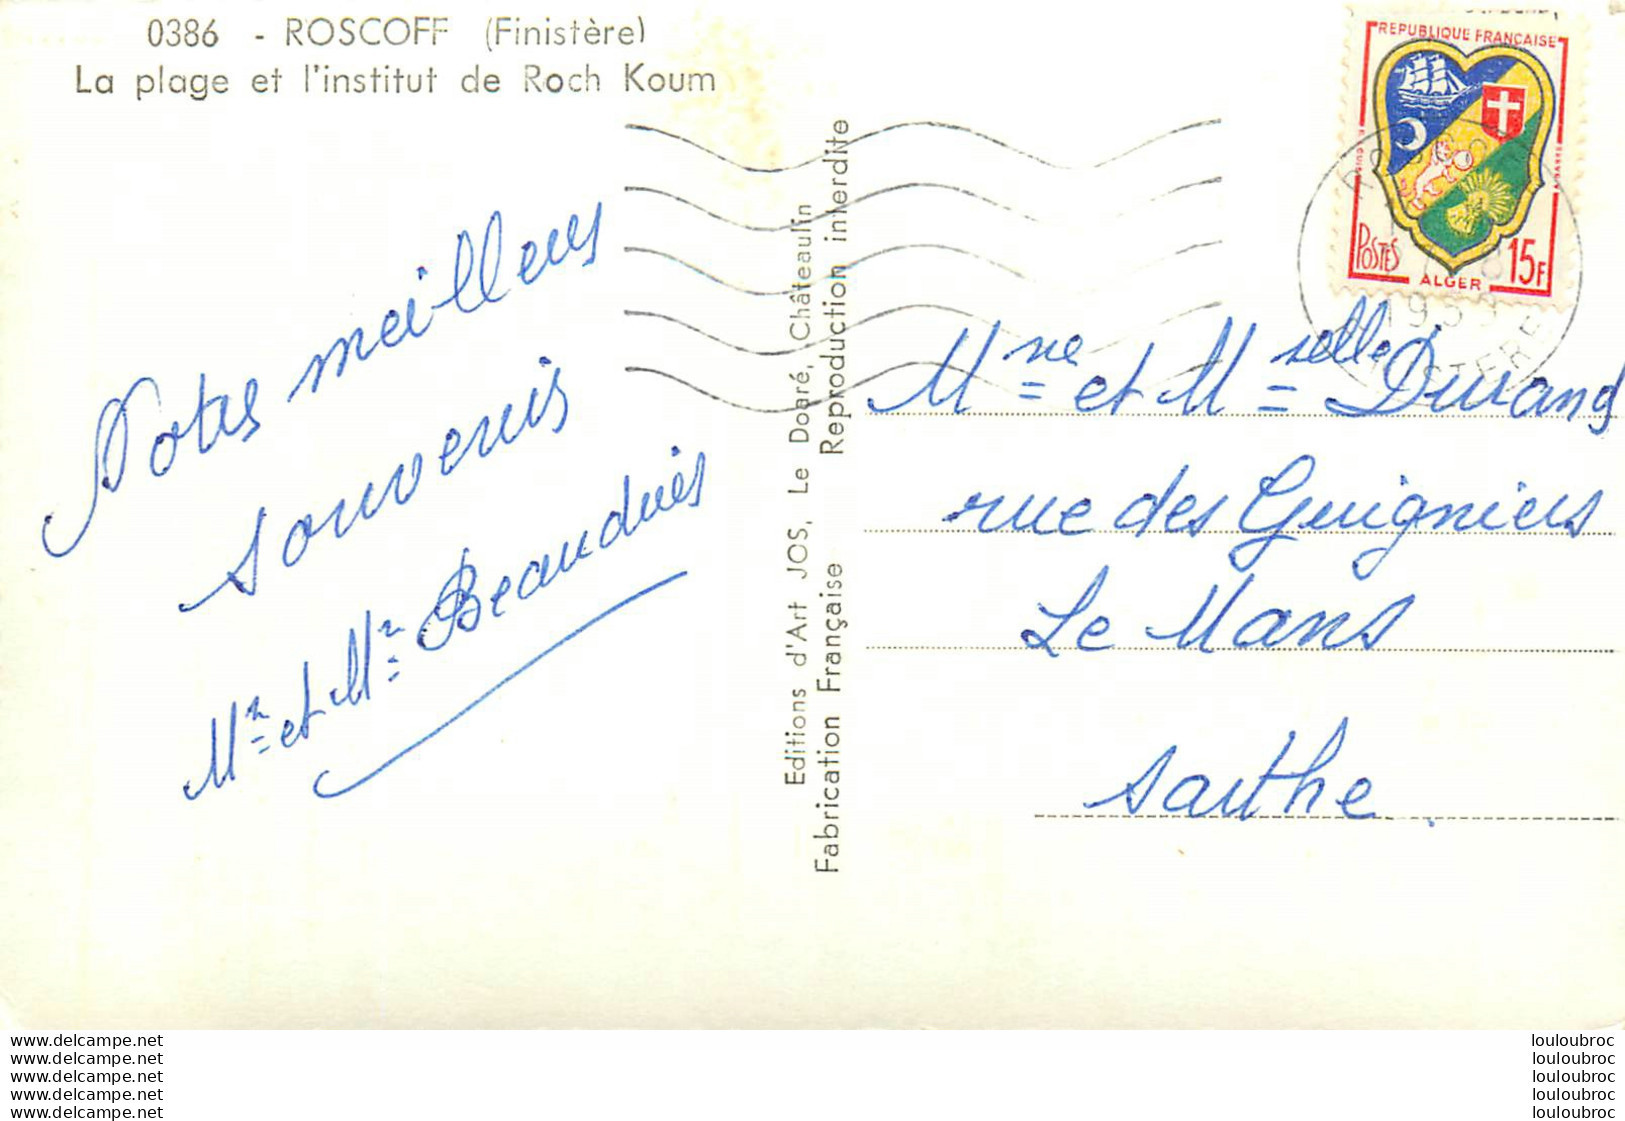 0386 - ROSCOFF (Finistère)
La plage et l'institut de Roch Koum
REPUBLIQUE FRANÇAISE
POSTES
ALGER
15F
1959
Notre meilleurs
souvenirs
Mr et Mr Beaudries
Editions d'Art JOS, Le Doaré, Châteaulin
Fabrication Française Reproduction interdite
Mme et Mselle Durand
rue des Guigniers
Le Mans
Sarthe
www.delcampe.net
www.delcampe.net
www.delcampe.net
www.delcampe.net
www.delcampe.net
louloubroc
louloubroc
louloubroc
louloubroc
louloubroc